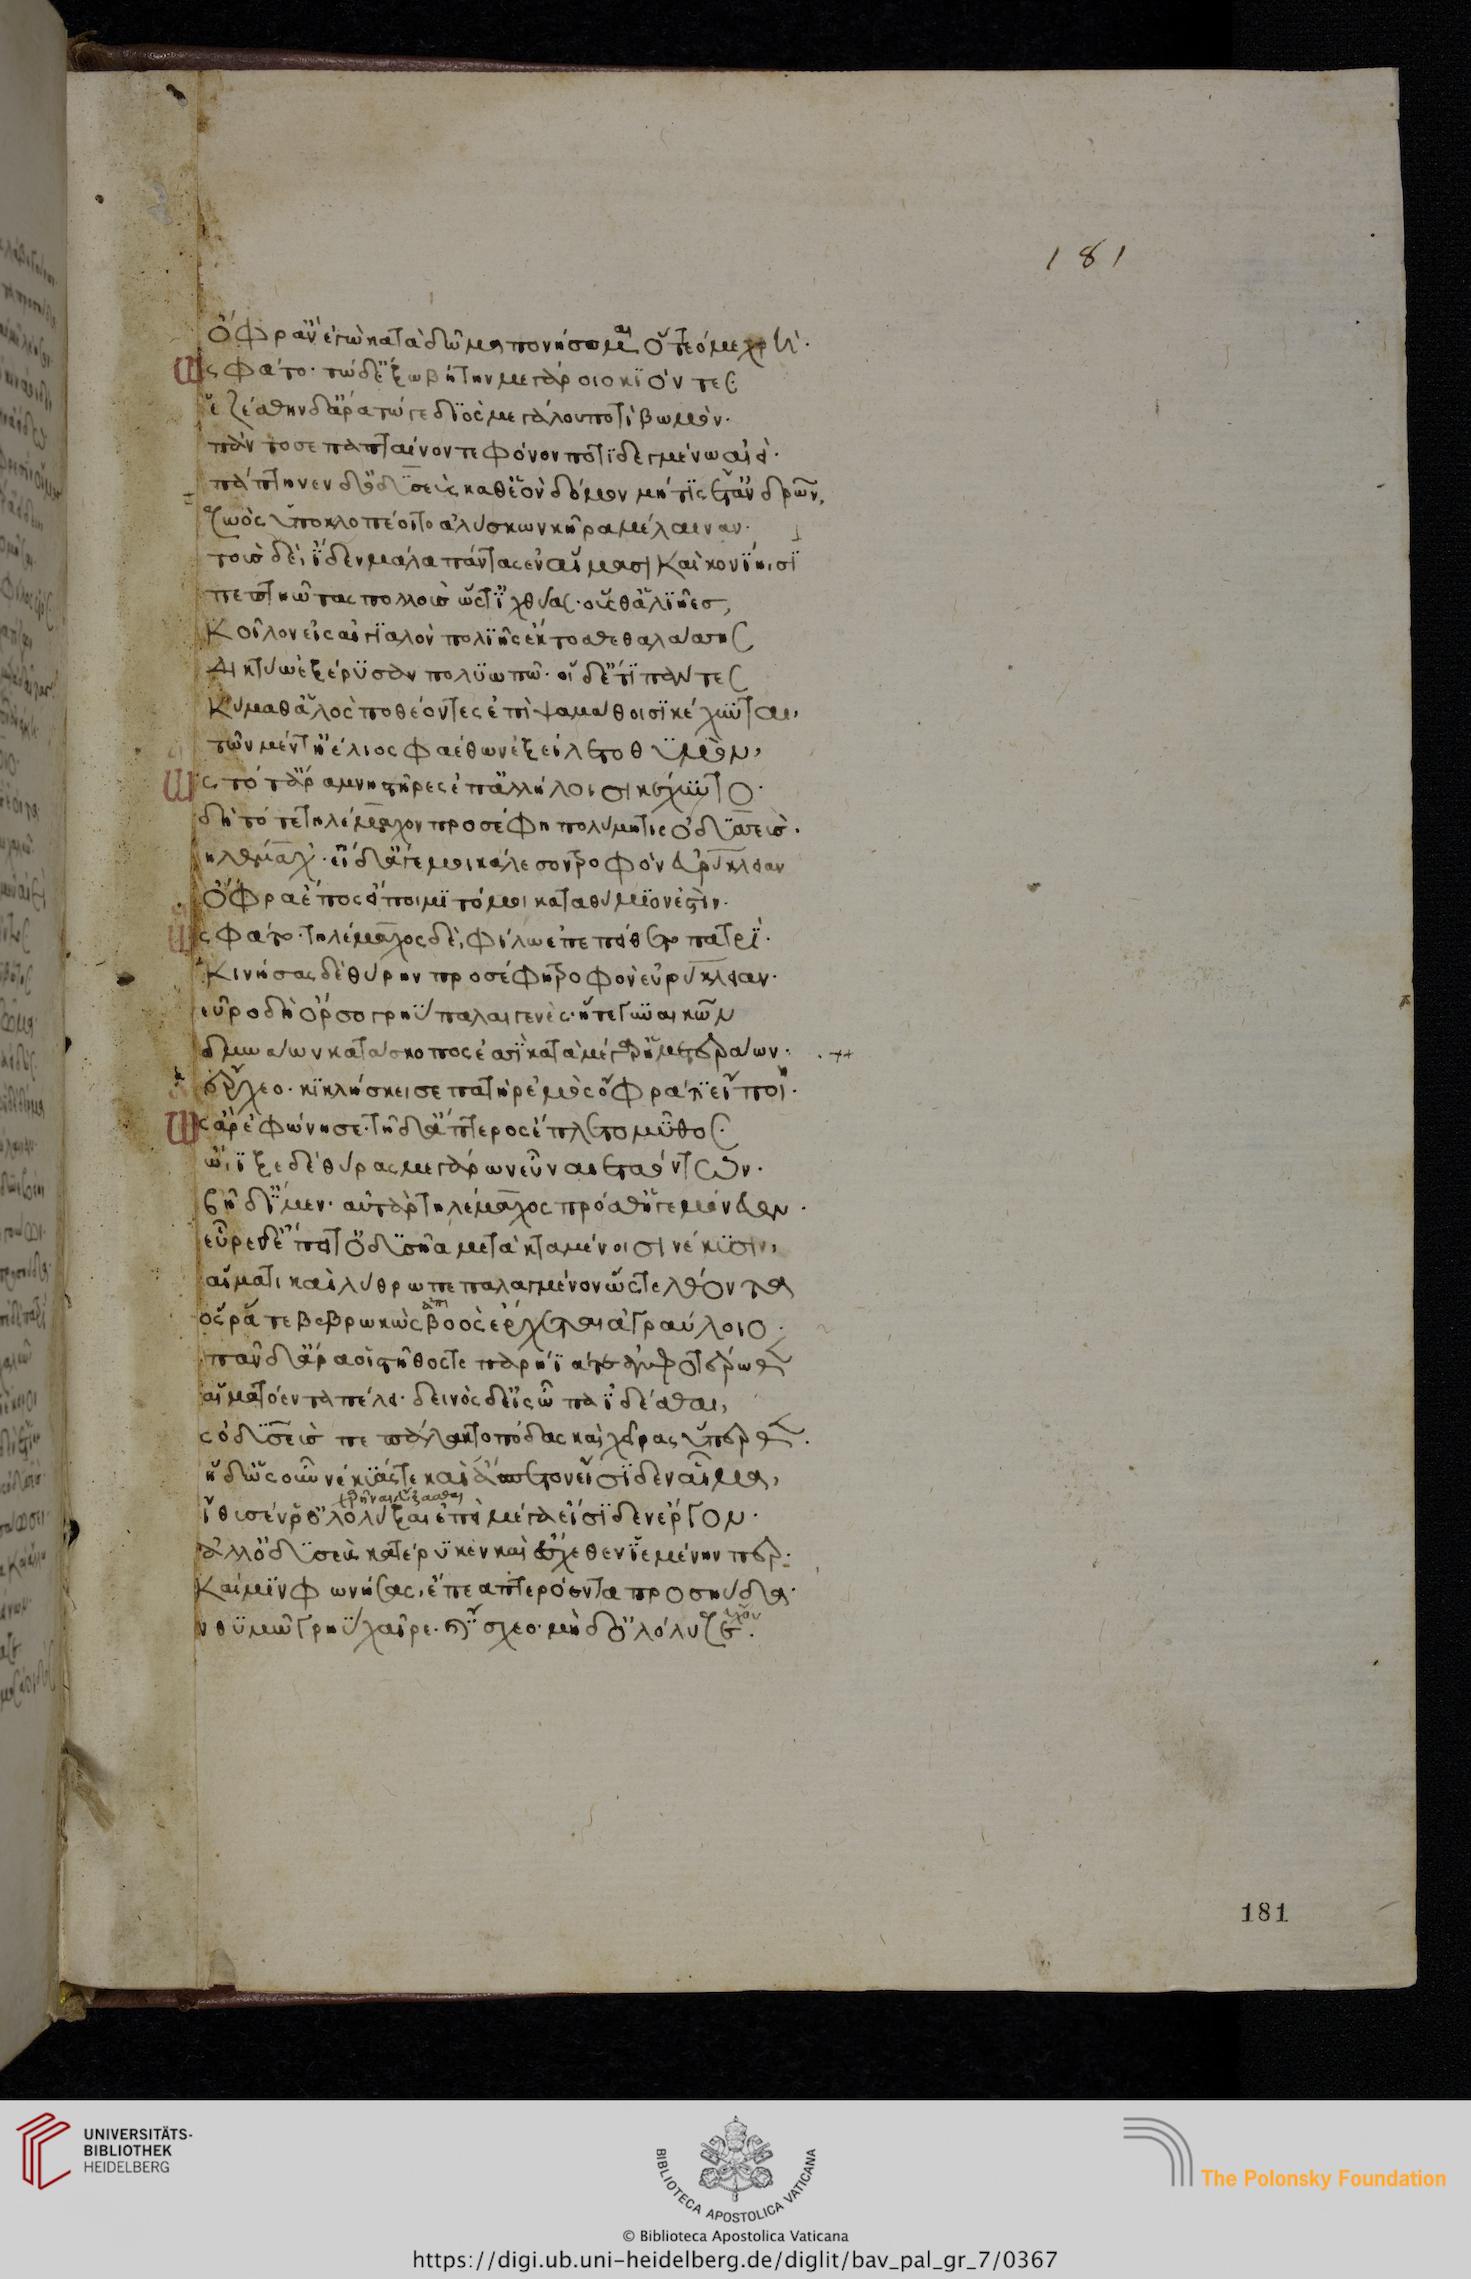 181
ὄφρ' ἂν ἐγὼ κατὰ δῶμα πονήσομαι ὅττεό με χρή.
ὣς φάτο· τὼ δ' ἔξω βήτην μεγάροιο κϊόντες
ἑζέσθην δ' ἄρα τώγε δϊὸς μεγάλου ποτὶ βωμόν.
πάντοσε παπταίνοντε φόνον ποτϊδεγμένω αἰεί.
πάπτηνεν δ' ὀδϋσεὺς καθ' ἑὸν δόμον μήτϊς ἔτ' ἀνδρῶν,
ζωὸς ὑποκλοπέοιτο ἀλυσκων κῆρα μέλαιναν.
τοὺς δὲ, ἴδεν μάλα πάντας ἐν αἵμασι καὶ κονΐηισϊ
πεπτηῶτας πολλοὺς ὥστ' ϊχθύας· οὕς θ' ἁλϊῆες,
κοῖλον εἰς αἰγϊαλὸν πολϊῆς ἔκτοσθε θαλάσσης
δικτύω ἐξέρϋσαν πολϋωπῶ· οἱ δέ τϊ πάντες
κύμαθ' ἁλὸς ποθέοντες ἐπὶ ψαμάθοισϊ κέχϋνται,
τῶν μέν τ' ἠέλιος φαέθων ἐξείλετο θϋμόν,
ὣς τότ' ἄρα μνηστῆρες ἐπ' ἀλλήλοισι κέχϋντο.
δὴ τότε τηλέμαχον προσέφη πολύμητις ὀδϋσσεύς.
τηλέμαχ'· εἰ δ' ἄγε μοι κάλεσον τροφὸν εὐρύκλειαν
ὄφρα ἔπος εἴποιμϊ τό μοι καταθύμϊόν ἐστὶν.
ὣς φάτο· τηλέμαχος δὲ, φίλω ἐπεπείθετο πατρΐ.
κινήσας δὲ θύρην προσέφη τροφὸν εὐρύκλειαν.
δεῦρο δὴ ὄρσο γρηῢ παλαιγενὲς· ἥτε γϋναικῶν
δμωάων κατὰ σκοπος ἐσσϊ κατὰ μέγαρ' ἡμετεράων.
ἔρχεο· κϊκλήσκει σε πατὴρ ἐμὸς ὄφρα τϊ εἴποι.
ὣς ἄρ' ἐφώνησε· τῆ δ' ἄπτερος ἔπλετο μῦθος.
ὤϊξε δὲ θύρας μεγάρων εὖ ναιεταόντων.
βῆ δ' ϊμεν· αὐτὰρ τηλέμαχος πρόσθ' ἡγεμόνευεν.
εὗρεν ἔπειτ' ὀδϋσῆα μετὰ κταμένοισι νέκϋσσιν,
αἵματι καὶ λύθρω πεπαλαγμένον ὥστε λέοντα
ὅς ῥά τε βεβρωκὼς βοὸς ἔρχεται ἀγραύλοιο.
πᾶν δ' ἄρα οἱ στῆθός τε παρήϊά τ' ἀμφοτέρωθεν
αἱματόεντα πέλει· δεινὸς δ' εἰς ὦπα ϊδέσθαι,
ὣς ὀδϋσσεὺς πεπάλακτο πόδας καὶ χεῖρας ὕπερθεν.
ἡ δ' ὡς οὖν νέκϋάς τε καὶ ἄσπετον εἴσϊδεν αἷμα,
ἴθϋσέν ῥ' ὀλολύξαι ἐπεὶ μέγα εἴσϊδεν ἔργον.
ἀλλ' ὀδϋσεὺς κατέρϋκεν καὶ ἔσχεθεν ϊεμένην περ.
καί μϊν φωνήσας, ἔπεα πτερόεντα προσηύδα.
ἐν θϋμῶ γρηῢ χαῖρε· καὶ ἴσχεο· μὴ δ' ὀλόλυζε.
181
UNIVERSITÄTS-
BIBLIOTHEK
HEIDELBERG
BIBLIOTECA APOSTOLICA VATICANA
The Polonsky Foundation
© Biblioteca Apostolica Vaticana
https://digi.ub.uni-heidelberg.de/diglit/bav_pal_gr_7/0367